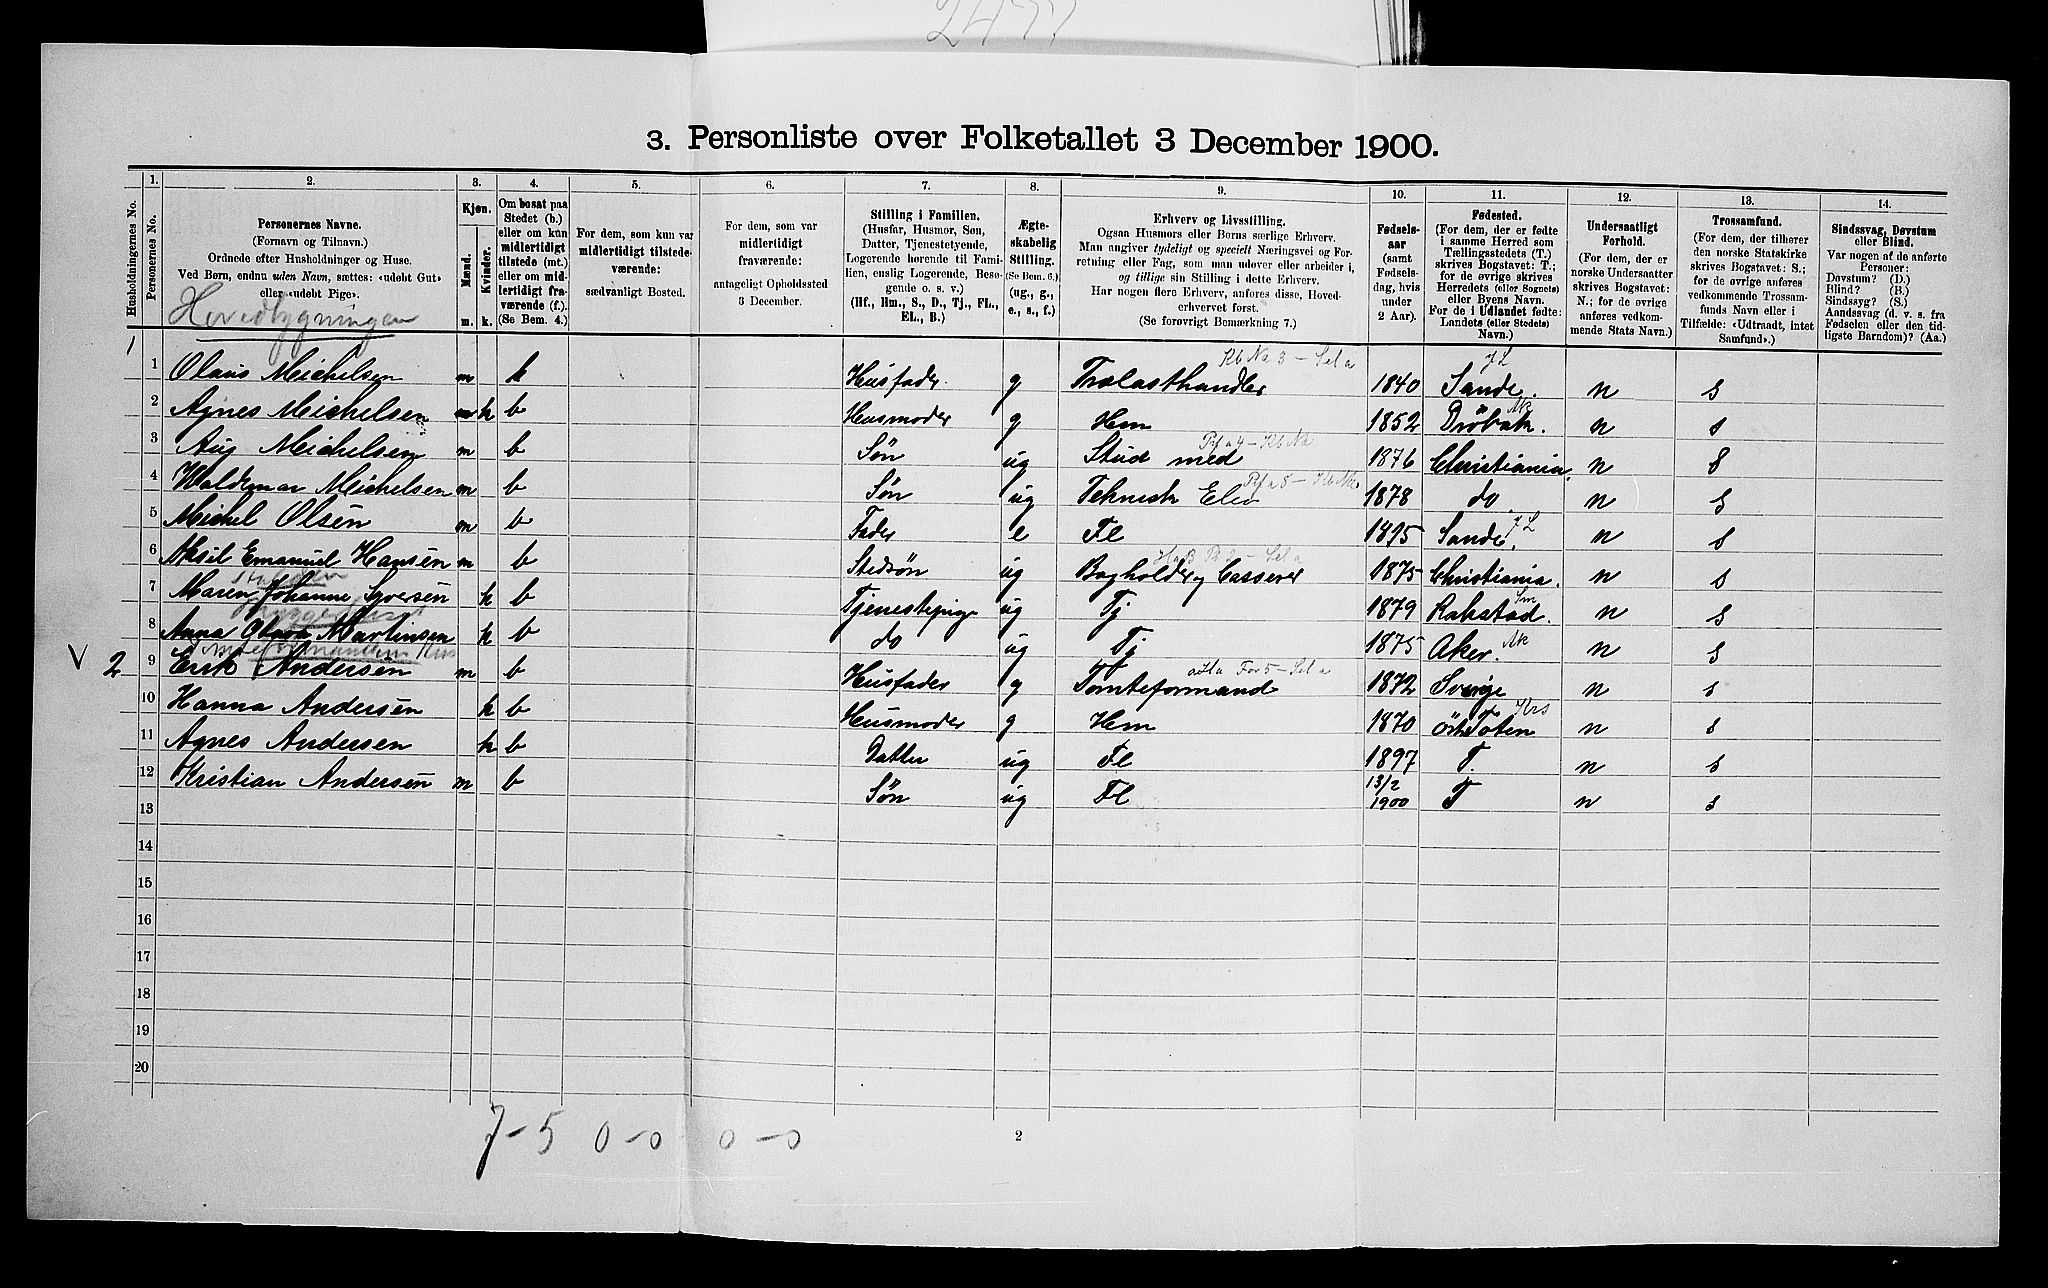 3. Personliste over Folketallet 3 December 1900.
Husholdningernes No.
1.
Personernes No.
2.
Personernes Navne.
(Fornavn og Tilnavn.)
Ordnede efter Husholdninger og Huse.
Ved Børn, endnu uden Navn, sættes: «udøbt Gut»
eller «udøbt Pige».
Hovedbygningen
3.
Kjøn.
Mænd.
Kvinder.
m. k.
4.
Om bosat paa
Stedet (b.)
eller om kun
midlertidigt
tilstede (mt.)
eller om mid-
lertidigt fra-
værende (f.).
(Se Bem. 4.)
5.
For dem, som kun var
midlertidigt tilstede-
værende:
sædvanligt Bosted.
6.
For dem, som var
midlertidigt
fraværende:
antageligt Opholdssted
3 December.
7.
Stilling i Familien.
(Husfar, Husmor, Søn,
Datter, Tjenestetyende,
Logerende hørende til Fami-
lien, enslig Logerende, Besø-
gende o. s. v.)
(Hf., Hm., S., D., Tj., FL.,
EL., B.)
8.
Ægte-
skabelig
Stilling.
(Se Bem. 6.)
(ug., g.,
e., s., f.)
9.
Erhverv og Livsstilling.
Ogsaa Husmors eller Børns særlige Erhverv.
Man angiver tydeligt og specielt Næringsvei og For-
retning eller Fag, som man udøver eller arbeider i,
og tillige sin Stilling i dette Erhverv.
Har nogen flere Erhverv, anføres disse, Hoved-
erhvervet først.
(Se forøvrigt Bemærkning 7.)
10.
Fødsels-
aar
(samt
Fødsels-
dag, hvis
under
2 Aar).
11.
Fødested.
(For dem, der er fødte
i samme Herred som
Tællingsstedets (T.)
skrives Bogstavet: T.;
for de øvrige skrives
Herredets (eller Sognets)
eller Byens Navn.
For de i Udlandet fødte:
Landets (eller Stedets)
Navn.)
12.
Undersaatligt
Forhold.
(For dem, der er
norske Undersaatter
skrives Bogstavet:
N.; for de øvrige
anføres vedkom-
mende Stats Navn.)
13.
Trossamfund.
(For dem, der tilhører
den norske Statskirke
skrives Bogstavet: S.;
for de øvrige anføres
vedkommende Trossam-
funds Navn eller i
Tilfælde: «Udtraadt, intet
Samfund».)
14.
Sindssvag, Døvstum
eller Blind.
Var nogen af de anførte
Personer:
Døvstum? (D.)
Blind? (B.)
Sindssyg? (S.)
Aandssvag (d. v. s. fra
Fødselen eller den tid-
ligste Barndom)? (Aa.)
1 1 Olaus Michelsen m b Husfader g Trælasthandler 1840 Sande. n s
2 Agnes Michelsen k b Husmoder g Hm 1852 Dröbak. n s
3 Aug Michelsen m b Søn ug Stud med 1876 Christiania n s
4 Waldemar Michelsen m b Søn ug Teknisk Elev 1878 do n s
5 Michel Olsen m b Fader e Fl Sande. n s
6 Aksil Emanuel Hansen m b Stedsøn ug Bogholder og Casserer 1875 Christiania. n s
7 Maren Johanne Syversen k b Tjenestepige ug Tj 1879 Rakstad. n s
8 Anna Martinsen k b do ug Tj 1875 Aker. n s
V 2 9 Erik Andersen m b Husfader g Tomteformand 1872 Sverige n s
10 Hanna Andersen k b Husmoder g Hm 1870 Öst Toten n s
11 Agnes Andersen k b Datter ug Fl 1897 T. n s
12 Kristian Andersen m b Søn ug Fl 13/2 1900 T n s
13
14
15
16
17
18
19
20
7-5 0-0 0-0
2